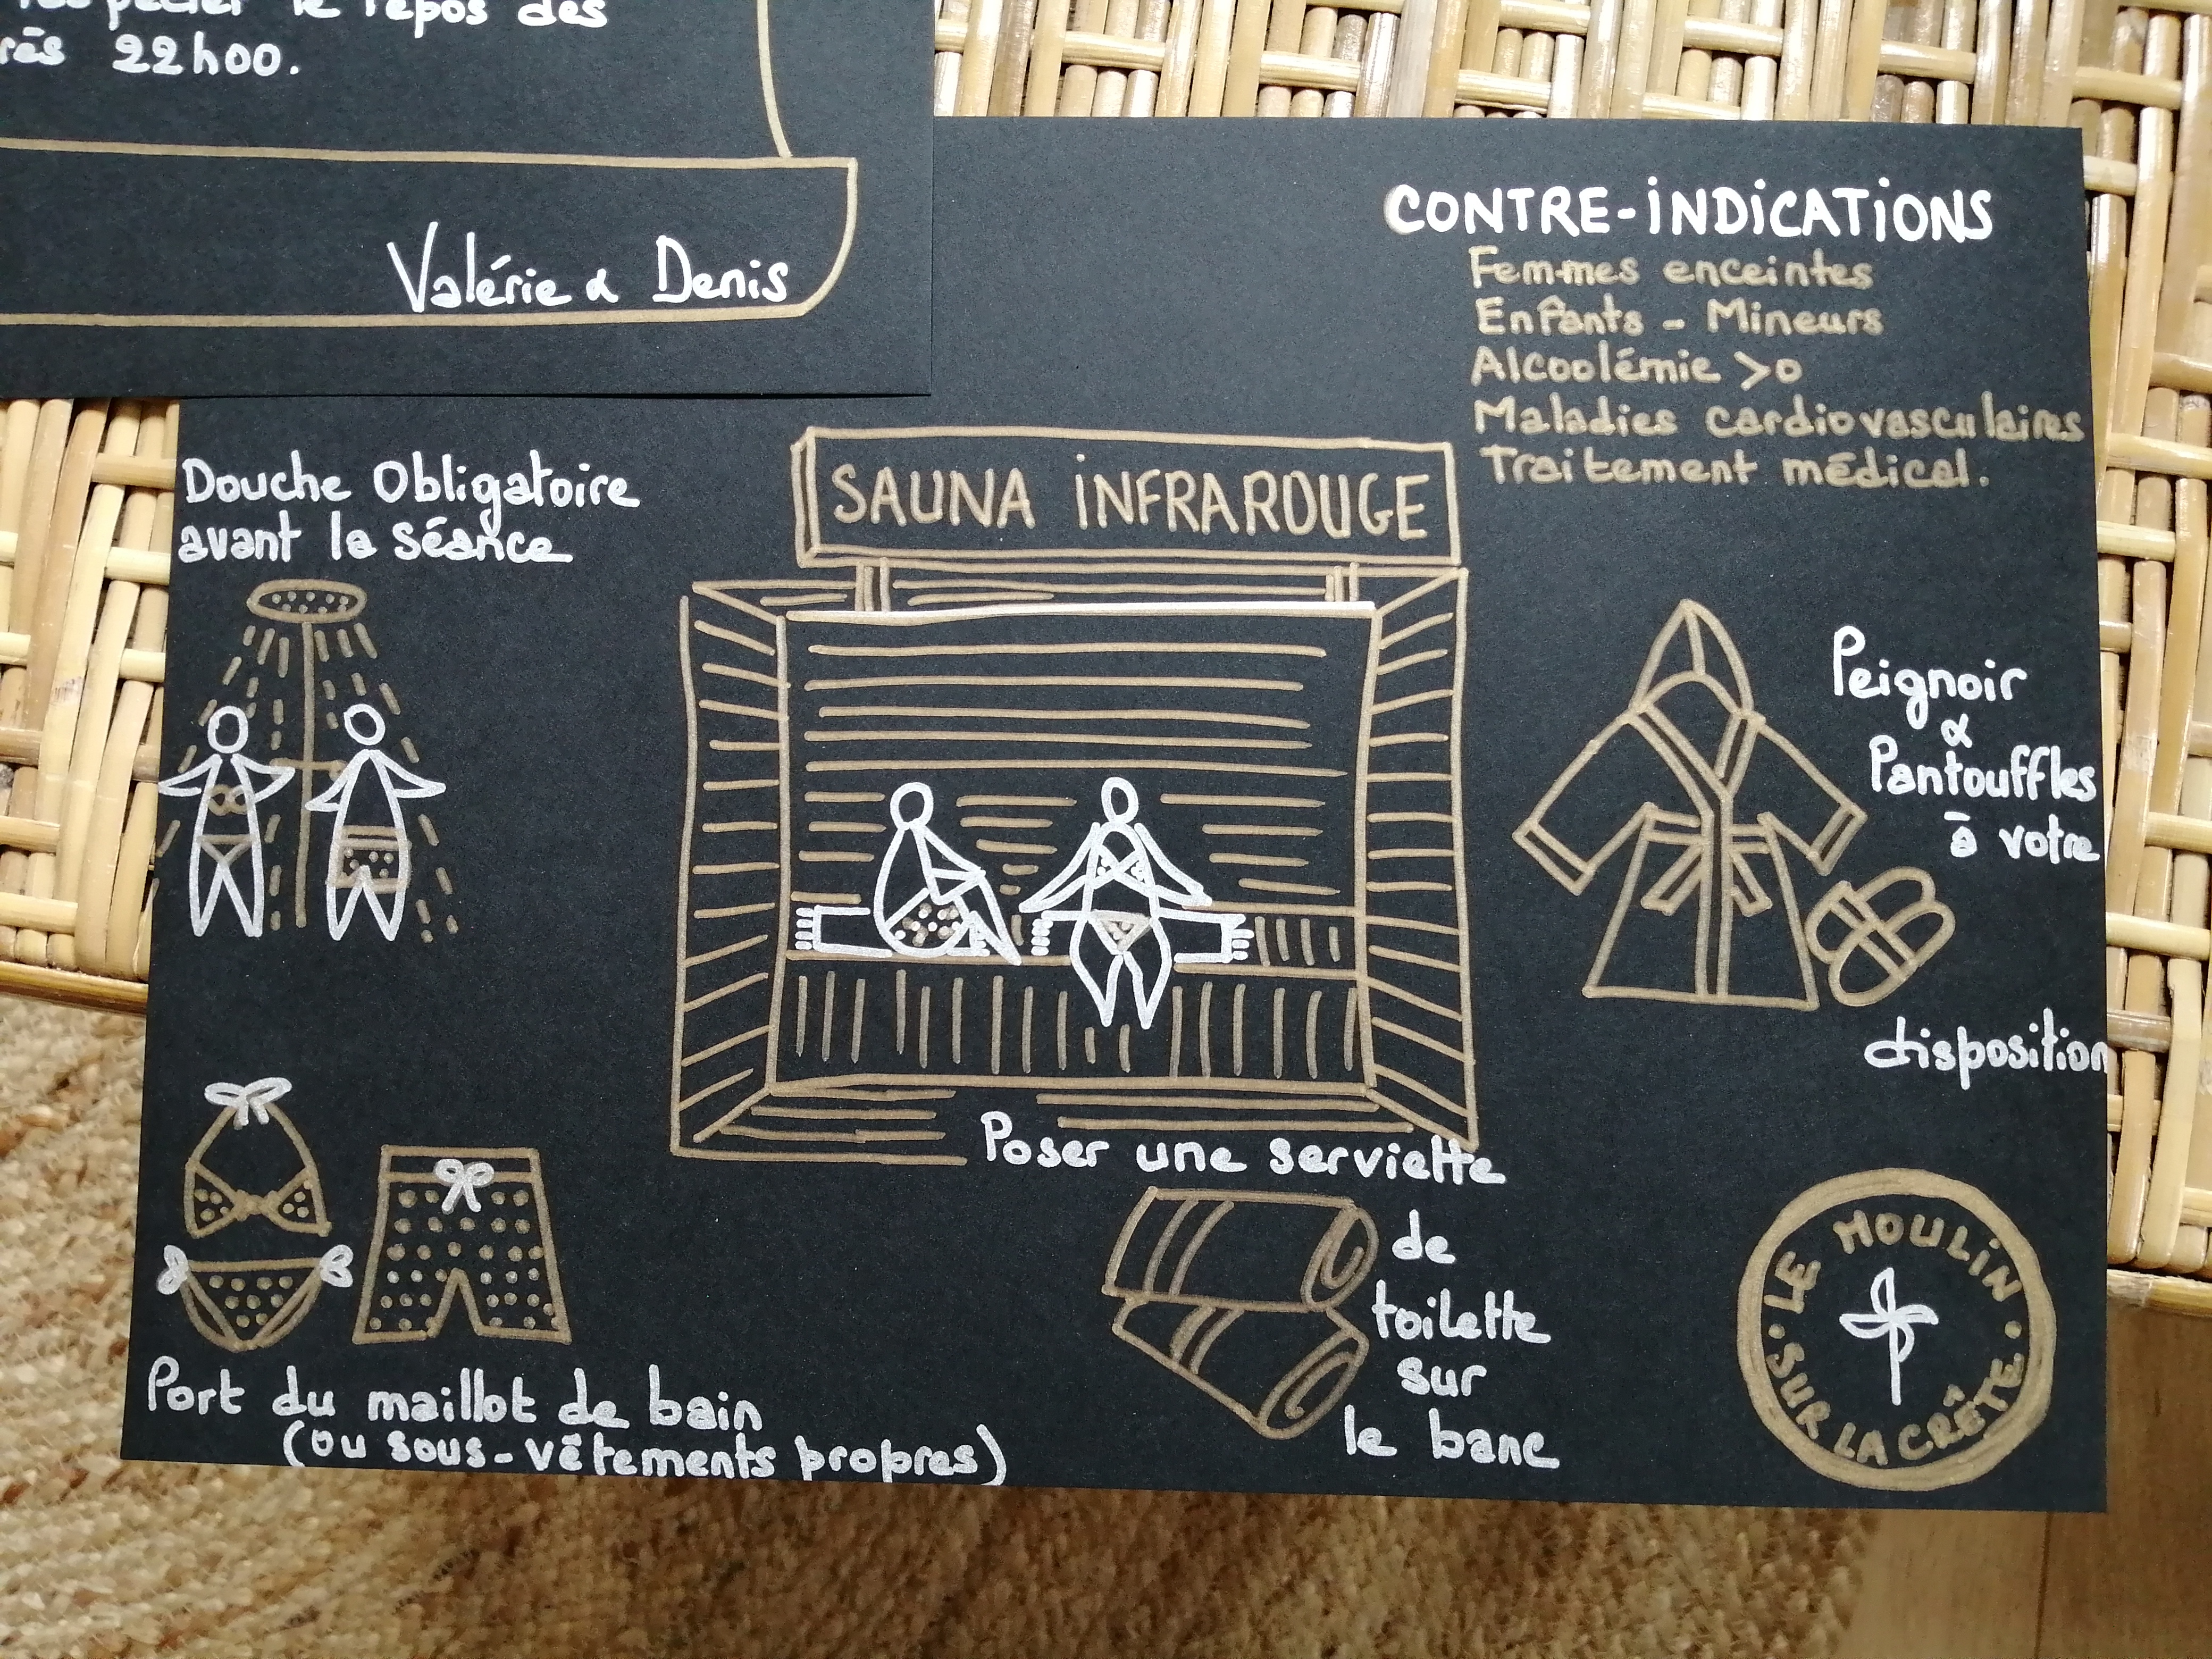 le repos des
22h00.
Valérie & Denis
CONTRE-iNDiCATiONS
Femmes enceintes
Enfants - Mineurs
Alcoolémie >0
Maladies cardiovasculaires
Traitement médical.
Douche Obligatoire
avant la séance
SAUNA iNFRAROUGE
Peignoir
&
Pantouffles
à votre
disposition
Poser une serviette
de
toilette
sur
le banc
Port du maillot de bain
(ou sous-vêtements propres)
• LE MOULiN •
SUR LA CRÊTE